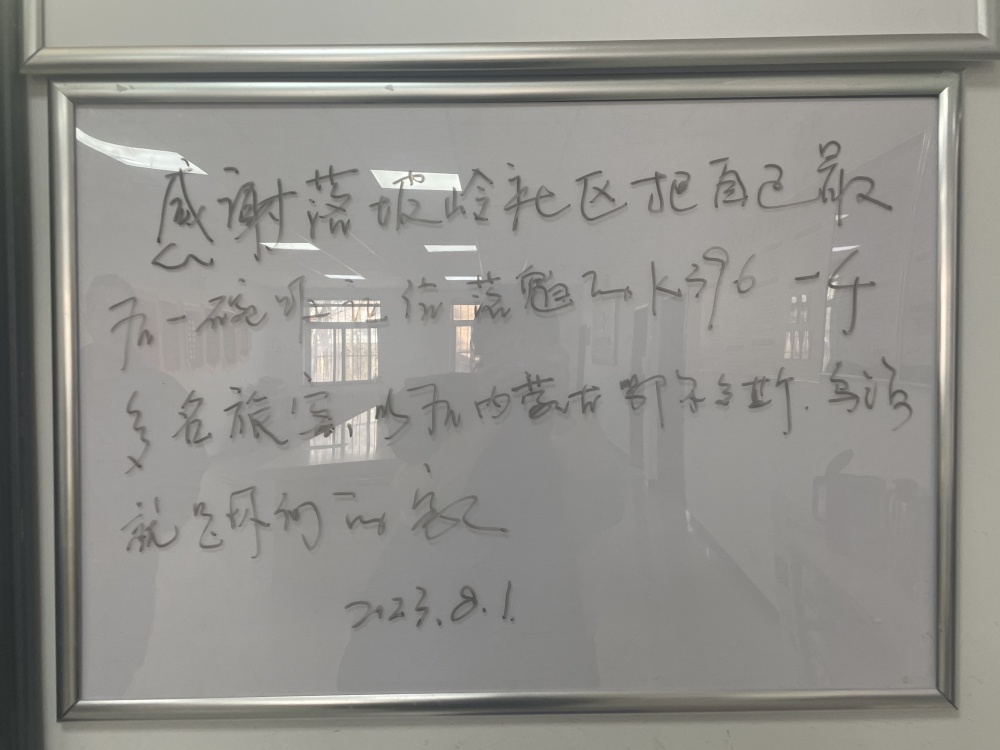 感谢落坡岭社区把自己最
后一碗 落难的K396一千
多名旅客,以后内蒙古鄂尔多斯.乌海
就是你们的家
2023.8.1.